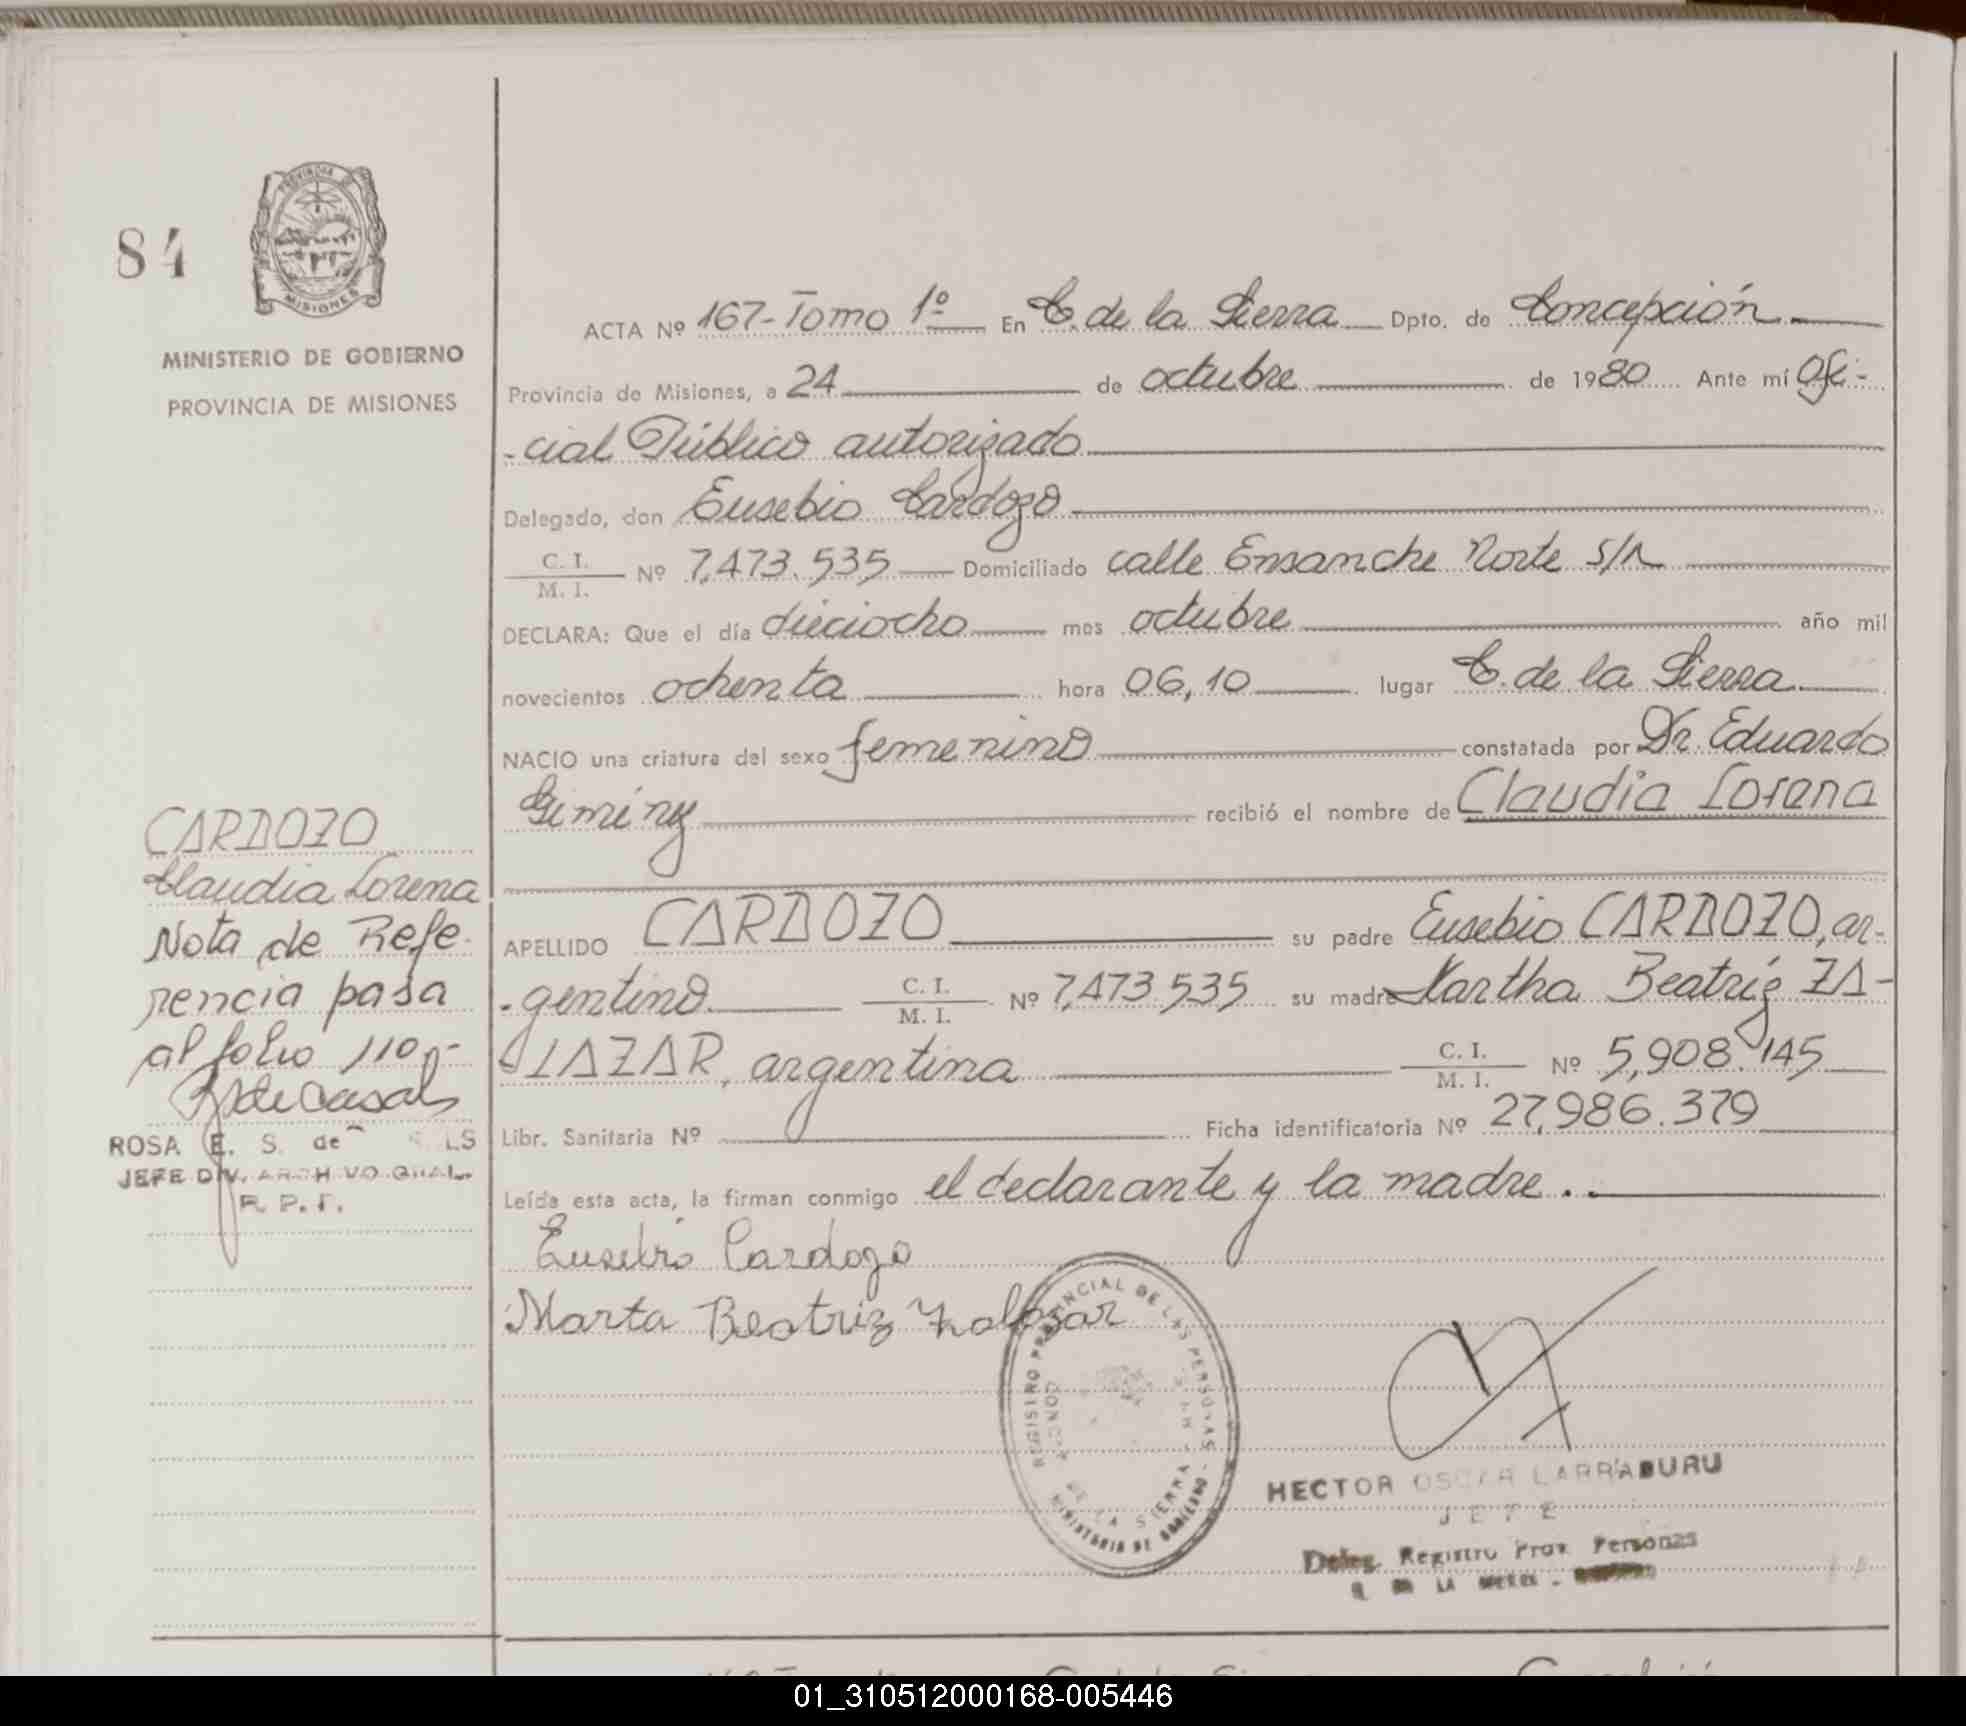 84
PROVINCIA DE
MISIONES
MINISTERIO DE GOBIERNO
PROVINCIA DE MISIONES
ACTA Nº 167-Tomo 1º En C. de la Sierra Dpto. de Concepción.
Provincia de Misiones, a 24 de octubre de 1980 Ante mí Ofi-
-cial Público autorizado
Delegado, don Eusebio Cardozo
C. I.
M. I. Nº 7,473.535 Domiciliado calle Ensanche Norte s/n
DECLARA: Que el día dieciocho mes octubre año mil
novecientos ochenta hora 06,10 lugar C. de la Sierra
NACIO una criatura del sexo femenino constatada por Dr. Eduardo
recibió el nombre de Claudia Lorena
CARDOZO
Claudia Lorena
Nota de Refe-
rencia pasa
al folio 110.-
ROSA E. S. de
JEFE DIV. ARCHIVO GRAL.
APELLIDO CARDOZO su padre Eusebio CARDOZO, ar-
-gentino C. I.
M. I. Nº 7,473.535 su madre Martha Beatriz ZA-
-LAZAR, argentina C. I.
M. I. Nº 5,908.145
Libr. Sanitaria Nº Ficha identificatoria Nº 27,986.379
Leída esta acta, la firman conmigo el declarante y la madre..
Eusebio Cardozo
Marta Beatriz Zalazar
REGISTRO PROVINCIAL DE LAS PERSONAS
DE LA SIERRA
MINISTERIO DE GOBIERNO
HECTOR OSCAR LARRABURU
JEFE
Deleg. Registro Prov. Personas
01_310512000168-005446